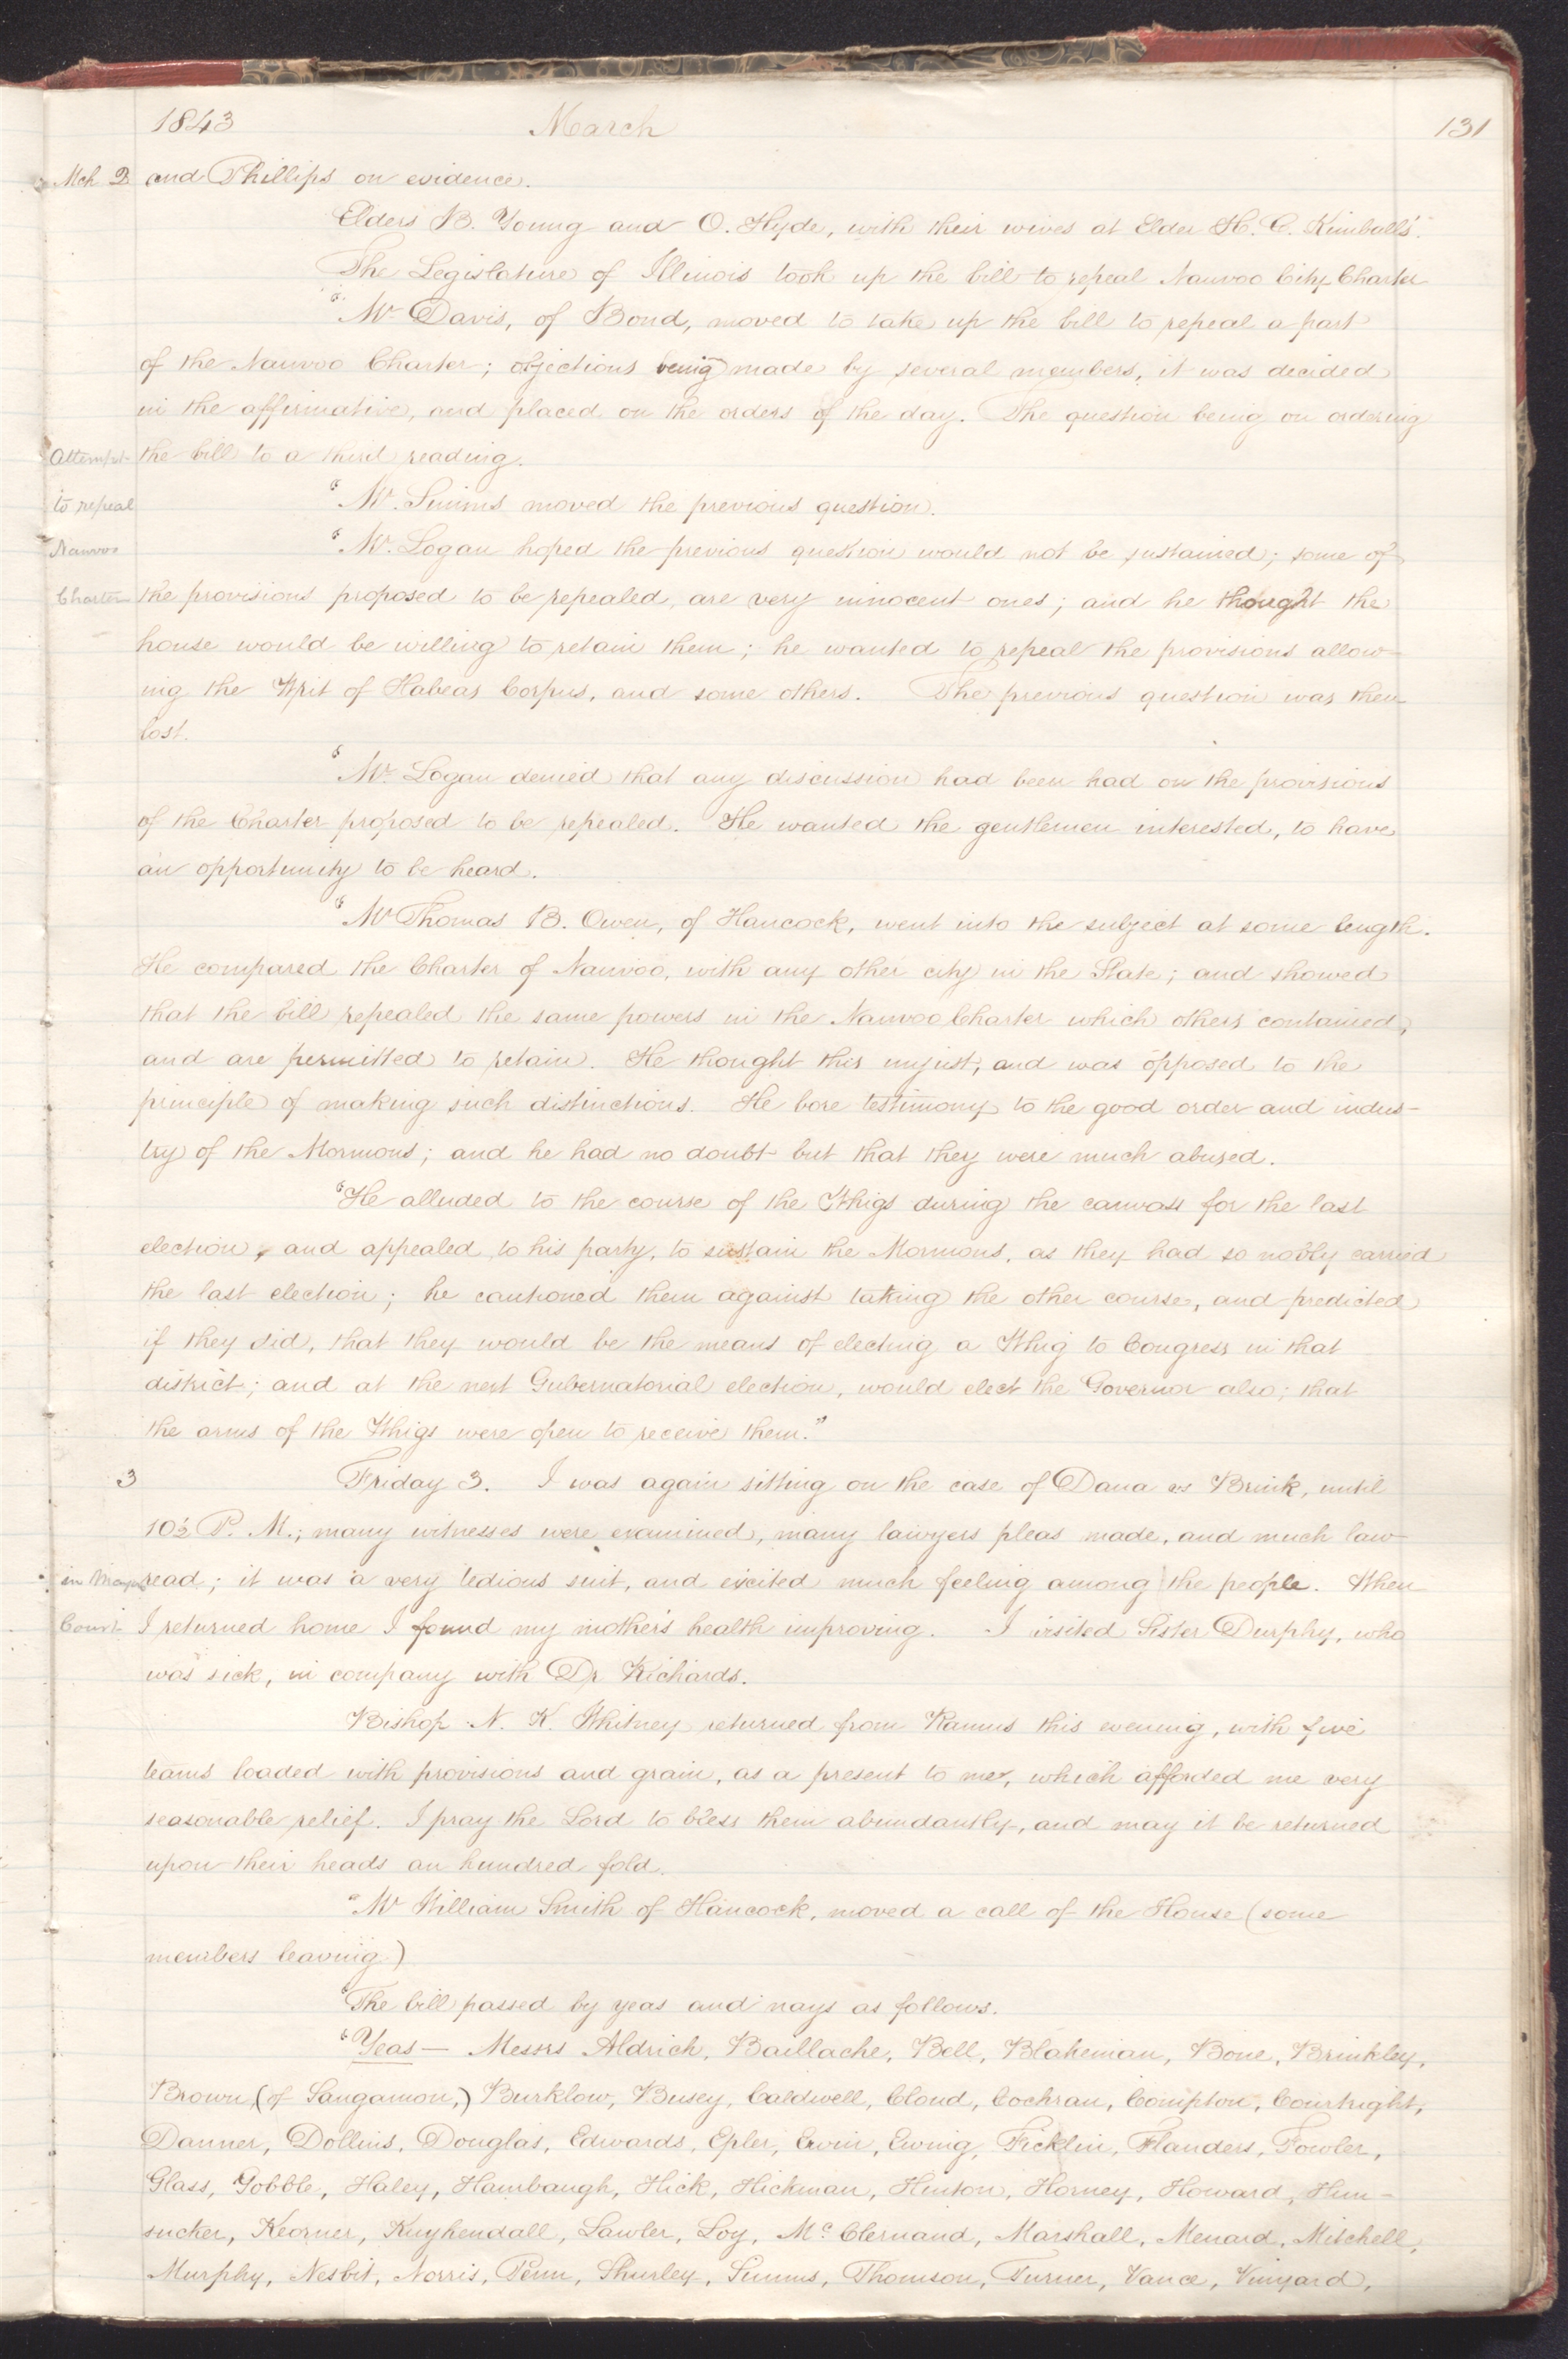 1843 March 131
Mch 2 and Phillips on evidence.
Elders B. Young and O. Hyde, with their wives at Elder H. C. Kimball's.
The Legislature of Illinois took up the bill to repeal Nauvoo City Charter
"Mr Davis, of Bond, moved to take up the bill to repeal a part
of the Nauvoo Charter; objections being made by several members, it was decided
in the affirmative, and placed on the orders of the day. The question being on ordering
Attempt the bill to a third reading.
to repeal "Mr. Simms moved the previous question.
Nauvoo "Mr. Logan hoped the previous question would not be sustained; some of
Charter the provisions proposed to be repealed, are very innocent ones; and he thought the
house would be willing to retain them; he wanted to repeal the provisions allow-
ing the Writ of Habeas Corpus, and some others. The previous question was then
lost.
"Mr. Logan denied that any discussion had been had on the provisions
of the Charter proposed to be repealed. He wanted the gentlemen interested, to have
an opportunity to be heard.
"Mr Thomas B. Owen, of Hancock, went into the subject at some length.
He compared the Charter of Nauvoo, with any other city in the State; and showed
that the bill repealed the same powers in the Nauvoo Charter which others contained,
and are permitted to retain. He thought this unjust, and was opposed to the
principle of making such distinctions. He bore testimony to the good order and indus-
try of the Mormons; and he had no doubt but that they were much abused.
"He alluded to the course of the Whigs during the canvass for the last
election, and appealed to his party, to sustain the Mormons, as they had so nobly carried
the last election; he cautioned them against taking the other course, and predicted
if they did, that they would be the means of electing a Whig to Congress in that
district; and at the next Gubernatorial election, would elect the Governor also; that
the arms of the Whigs were open to receive them."
3 Friday 3. I was again sitting on the case of Dana vs Brink, until
10½ P. M.; many witnesses were examined, many lawyers pleas made, and much law
in Mayor's read; it was a very tedious suit, and excited much feeling among the people. When
Court I returned home I found my mother's health improving. I visited Sister Durphy, who
was sick, in company with Dr Richards.
Bishop N. K. Whitney returned from Ramus this evening, with five
teams loaded with provisions and grain, as a present to me, which afforded me very
seasonable relief. I pray the Lord to bless them abundantly, and may it be returned
upon their heads an hundred fold.
"Mr William Smith of Hancock, moved a call of the House (some
members leaving)
"The bill passed by yeas and nays as follows.
"Yeas — Messrs Aldrich, Baillache, Bell, Blakeman, Bone, Brinkley,
Brown, (of Sangamon,) Burklow, Busey, Caldwell, Cloud, Cochran, Compton, Courtright,
Danner, Dollins, Douglas, Edwards, Epler, Ervin, Ewing, Ficklin, Flanders, Fowler,
Glass, Gobble, Haley, Hambaugh, Hick, Hickman, Hinton, Horney, Howard, Hun-
sucker, Keorner, Kuykendall, Lawler, Loy, McClernand, Marshall, Menard, Mitchell,
Murphy, Nesbit, Norris, Penn, Shurley, Simms, Thomson, Turner, Vance, Vinyard,